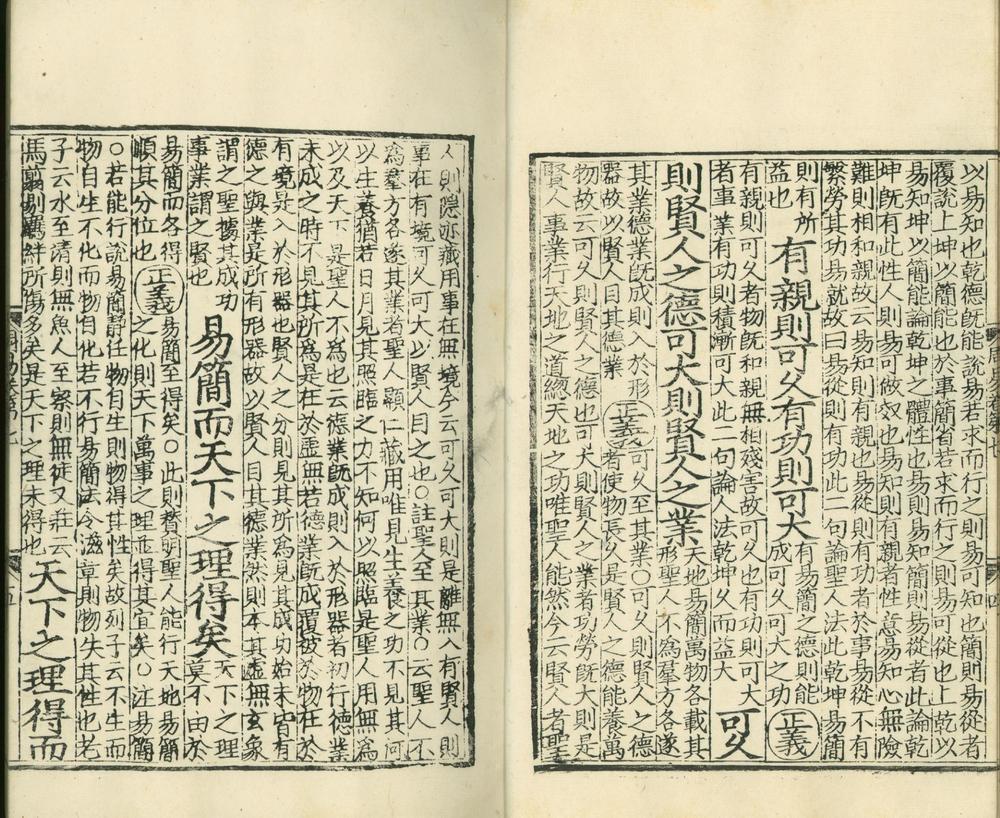 以易知也乾德旣能說易若求而行之則易可知也簡則易從者
覆說上坤以簡能也於事簡省若求而行之則易可從也上乾以
易知坤以簡能論乾坤之體性也易則易知簡則易從者此論乾
坤旣有此性人則易可倣效也易知則有親者性意易知心無險
難則相和親故云易知則有親也易從則有功者於事易從不有
繁勞其功易就故曰易從則有功此二句論聖人法此乾坤易簡
則有所
益也
有親則可久有功則可大
有易簡之德則能
成可久可大之功
正義
有親則可久者物旣和親無相殘害故可久也有功則可大
者事業有功則積漸可大此二句論人法乾坤久而益大
可久
則賢人之德可大則賢人之業
天地易簡萬物各載其
形聖人不爲羣方各遂
其業德業旣成則入於形
器故以賢人目其德業
正義
可久至其業○可久則賢人之德
者使物長久是賢人之德能養萬
物故云可久則賢人之德也可大則賢人之業者功勞旣大則是
賢人事業行天地之道總天地之功唯聖人能然今云賢人者聖
四
人則隱亦藏用事在無境今云可久可大則是離無入有賢人則
事在有境可久可大以賢人目之也○註聖人至其業○云聖人不
爲羣方各遂其業者聖人顯仁藏用唯見生養之功不見其何
以生養猶若日月見其照臨之力不知何以照臨是聖人用無爲
以及天下是聖人不爲也云德業旣成則入於形器者初行德業
未成之時不見其所爲是在於虛無若德業旣成覆被於物在於
有境是入於形器也賢人之分則見其所爲見其成功始末皆有
德之與業是所有形器故以賢人目其德業然則本其虛無玄象
謂之聖據其成功
事業謂之賢也
易簡而天下之理得矣
天下之理
莫不由於
易簡而各得
順其分位也
正義
易簡至得矣○此則贊明聖人能行天地易簡
之化則天下萬事之理並得其宜矣○注易簡
○若能行說易簡靜任物自生則物得其性矣故列子云不生而
物自生不化而物自化若不行易簡法令滋章則物失其性也老
子云水至清則無魚人至察則無徒又莊云
馬翦剔羈絆所傷多矣是天下之理未得也
天下之理得而
五